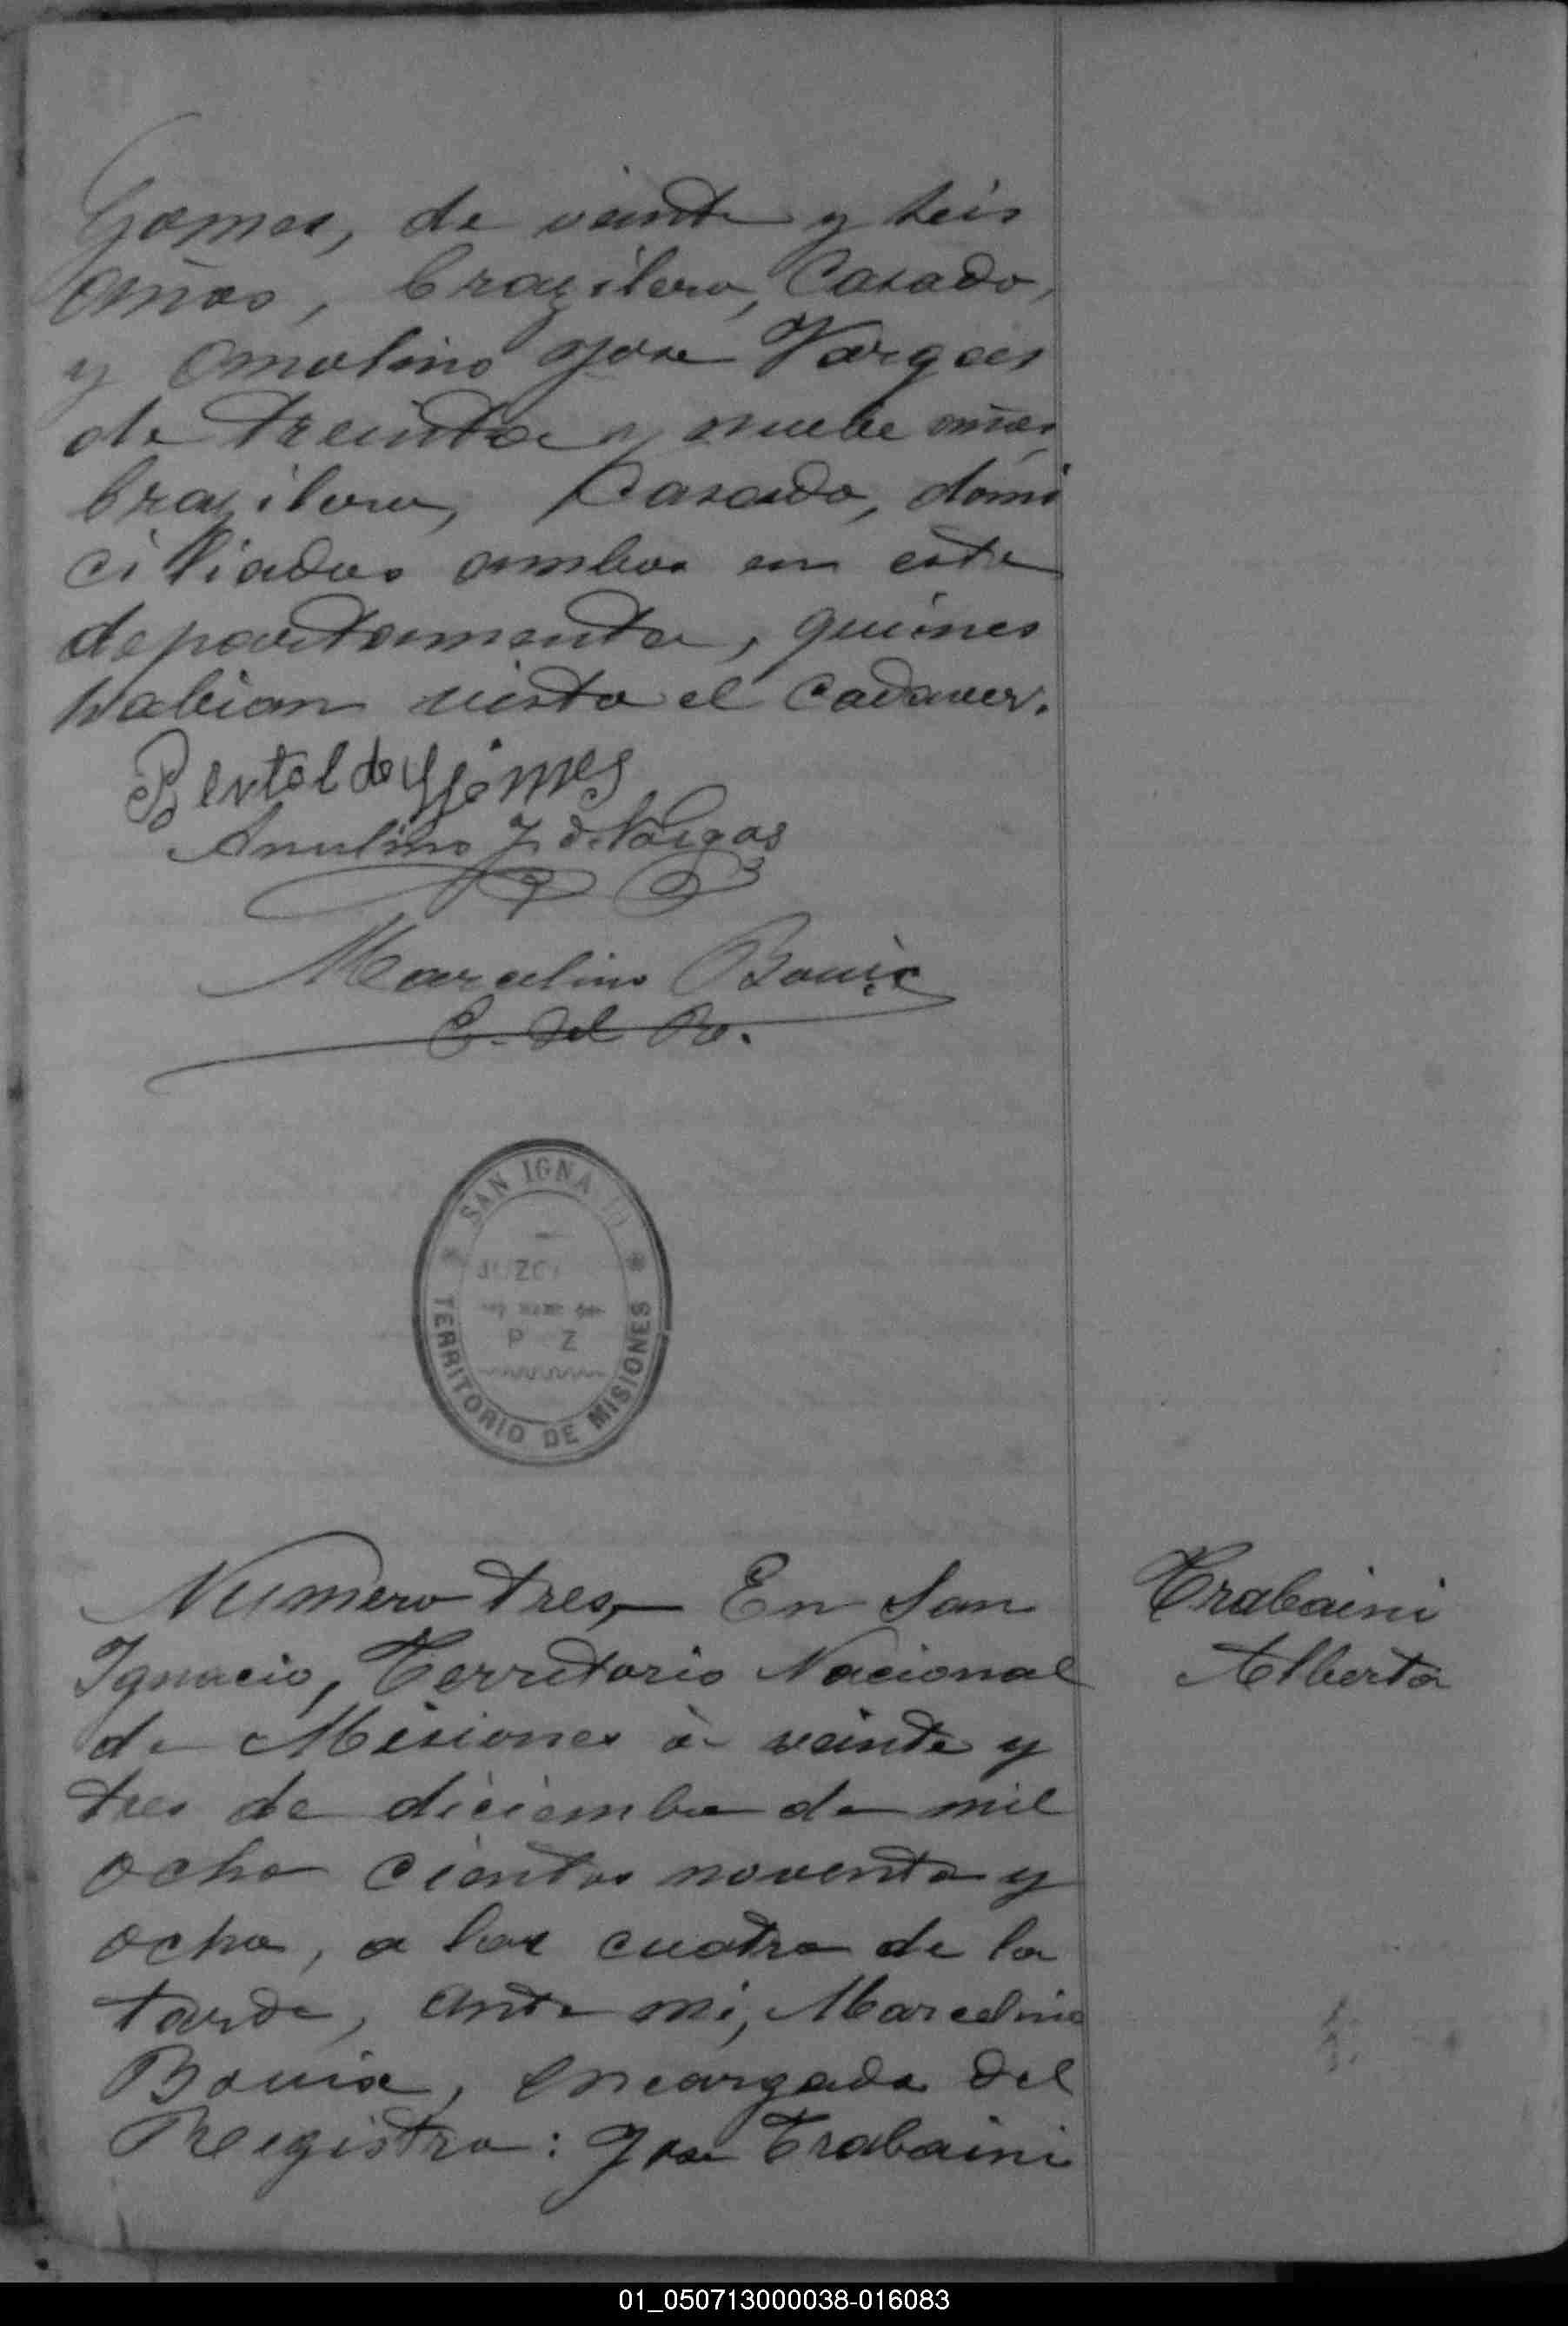 Gomes, de veinte y seis
años, brazilero, Casado,
y Amolino Jose Vargas
de treinta y nuebe años
brazilero, Casado, domi
ciliados ambos en este
departamento, quiénes
habian visto el cadaver.
Bertoldo Gomes
Anulino J. d. Vargas
Marcelino Bouix
E. del Ro.
SAN IGNA IO
JUZG
P Z
TERRITORIO DE MISIONES
Numero tres,— En San
Ignacio, Territorio Nacional
de Misiones à veinte y
tres de diciembre de mil
ocho cientos noventa y
ocho, a las cuatro de la
tarde, ante mi, Marcelino
Bouix, encargado del
Registro: Jose Trabaini
Trabaini
Alberto
01_050713000038-016083